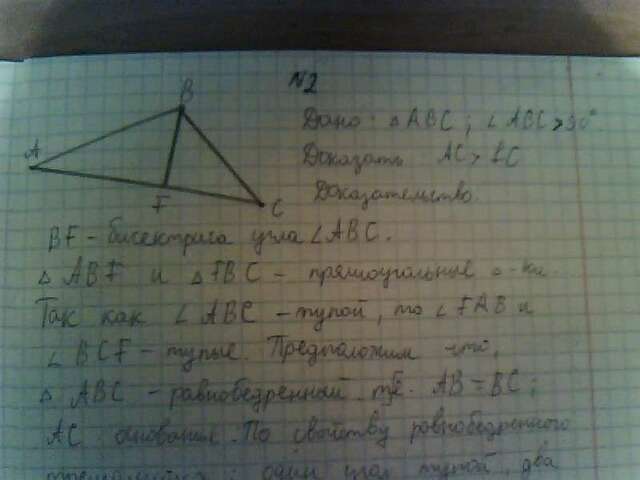 N2
B
A
F
C
Дано: △ABC; ∠ABC>90°
Доказать AC>BC
Доказательство.
BF - бисектриса угла ∠ABC.
△ ABF и △ FBC - прямоугольные △-ки.
Так как ∠ ABC - тупой, то ∠ FAB и
∠ BCF - тупые. Предположим что,
△ ABC - равнобедренный. AB = BC;
AC основания. По свойству равнобедренного
один угол тупой, два